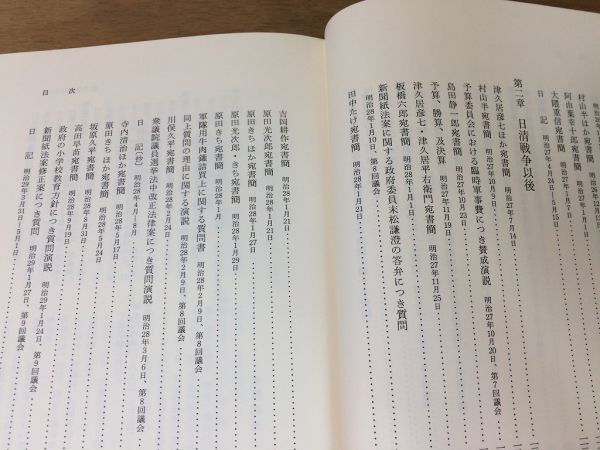 村山半ほか宛書簡 明治27年1月
阿由葉幸十郎宛書簡
大隈重信宛書簡
日記 明治27年4月24日―5月1日
第二章 日清戦争以後
津久居彦七ほか宛書簡 明治27年7月14日
村山半宛書簡 明治27年10月9日
予算委員会における臨時軍事費につき賛成演説 明治27年10月20日、第7回議会
島田静一郎宛書簡 明治27年10月23日
予算、勝算、及決算 明治27年11月19日
津久居彦七・津久居平右衛門宛書簡 明治27年11月25日
板橋六郎宛書簡 明治28年1月1日
新聞紙法案に関する政府委員末松謙澄の答弁につき質問
明治28年1月10日、第8回議会
田中たけ宛書簡 明治28年1月21日
吉岡耕作宛書簡 明治28年1月21日
原田光次郎宛書簡 明治28年1月21日
原田きちほか宛書簡 明治28年1月27日
原田光次郎・きち宛書簡 明治28年1月29日
原田きち宛書簡 明治28年1月
軍隊用牛肉鑵詰買上に関する質問書 明治28年2月9日、第8回議会
同上質問の理由に関する演説 明治28年2月9日、第8回議会
川俣久平宛書簡 明治28年2月24日
衆議院議員選挙法中改正法律案につき質問演説 明治28年3月6日、第8回議会
日記(抄) 明治28年4月―8月
寺内清治ほか宛書簡 明治28年5月17日
原田きちほか宛書簡 明治28年5月24日
坂原久平宛書簡 明治28年8月31日
高田早苗宛書簡 明治28年9月19日
政府の小学校教育方針につき質問演説 明治29年1月24日、第9回議会
新聞紙法案修正案につき質問 明治29年1月27日、第9回議会
日記 明治29年3月31日―5月1日
目次